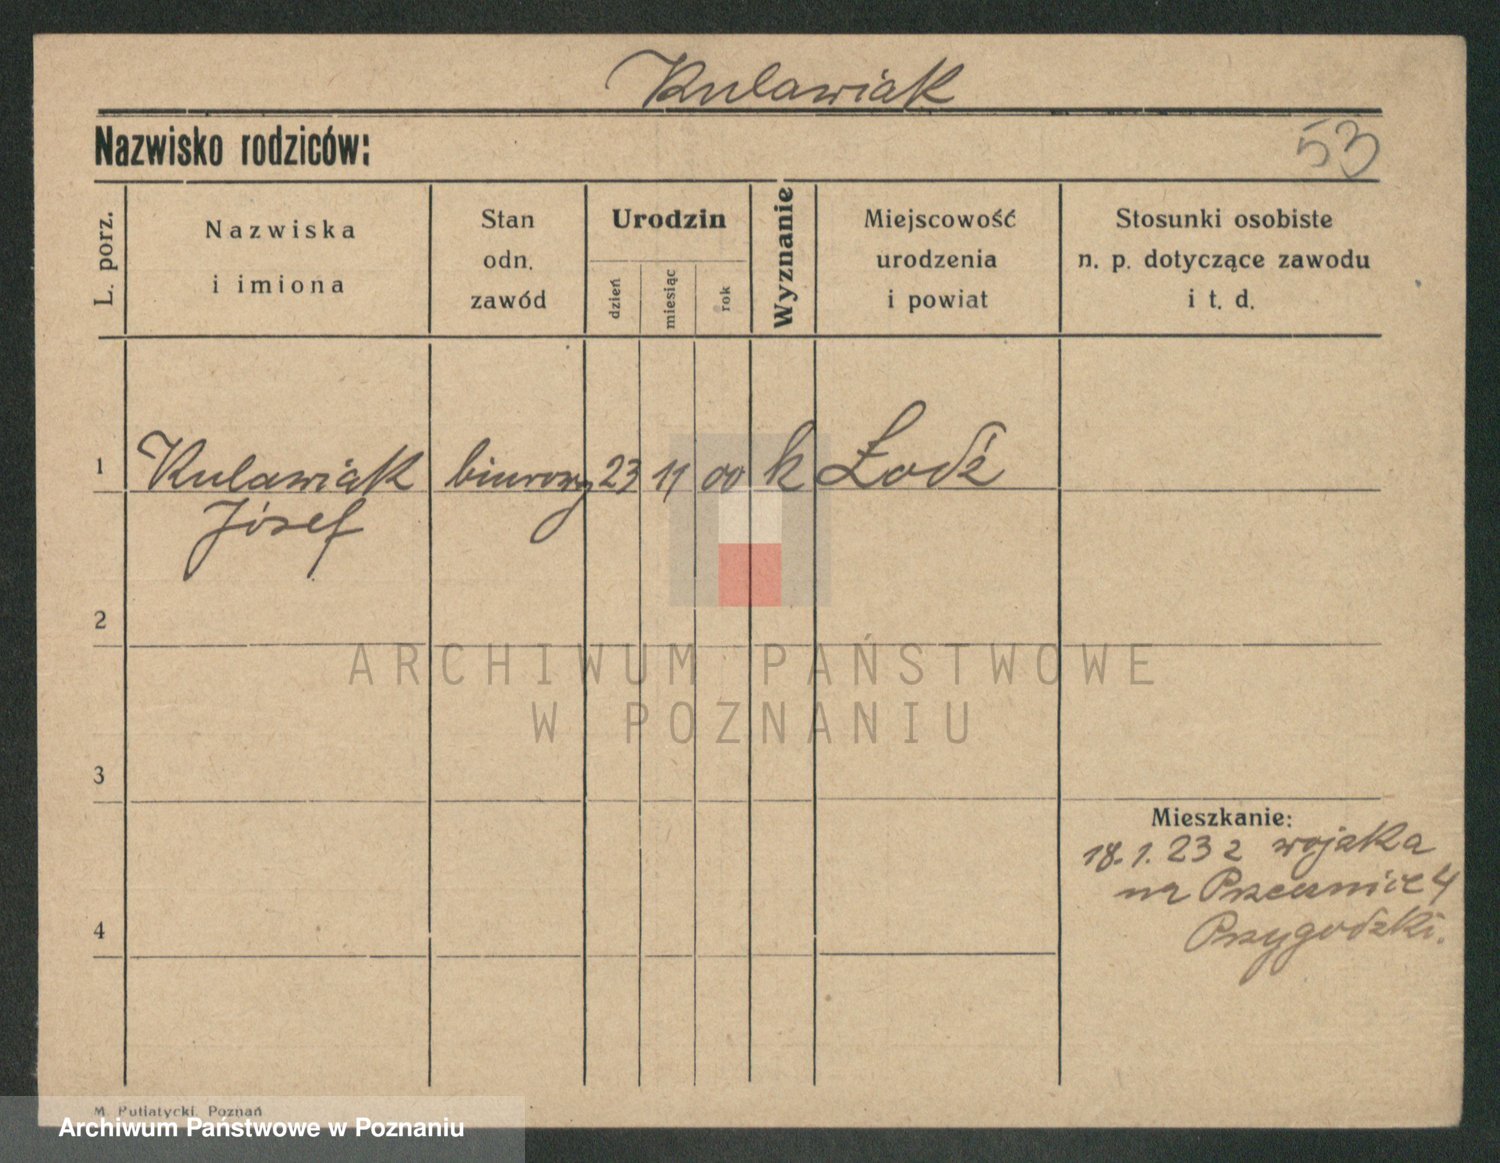 Kulawiak
Nazwisko rodziców:
53
L. porz.
Nazwiska
i imiona
Stan
odn.
zawód
Urodzin
dzień
miesiąc
rok
Wyznanie
Miejscowość
urodzenia
i powiat
Stosunki osobiste
n. p. dotyczące zawodu
i t. d.
1 Kulawiak biurowy 23 11 00 k Łodź
Józef
2
ARCHIWUM PAŃSTWOWE
W POZNANIU
3
Mieszkanie:
18.1.23 z wojska
na 4
4
Przygodzki.
M. Putiatycki, Poznań
Archiwum Państwowe w Poznaniu